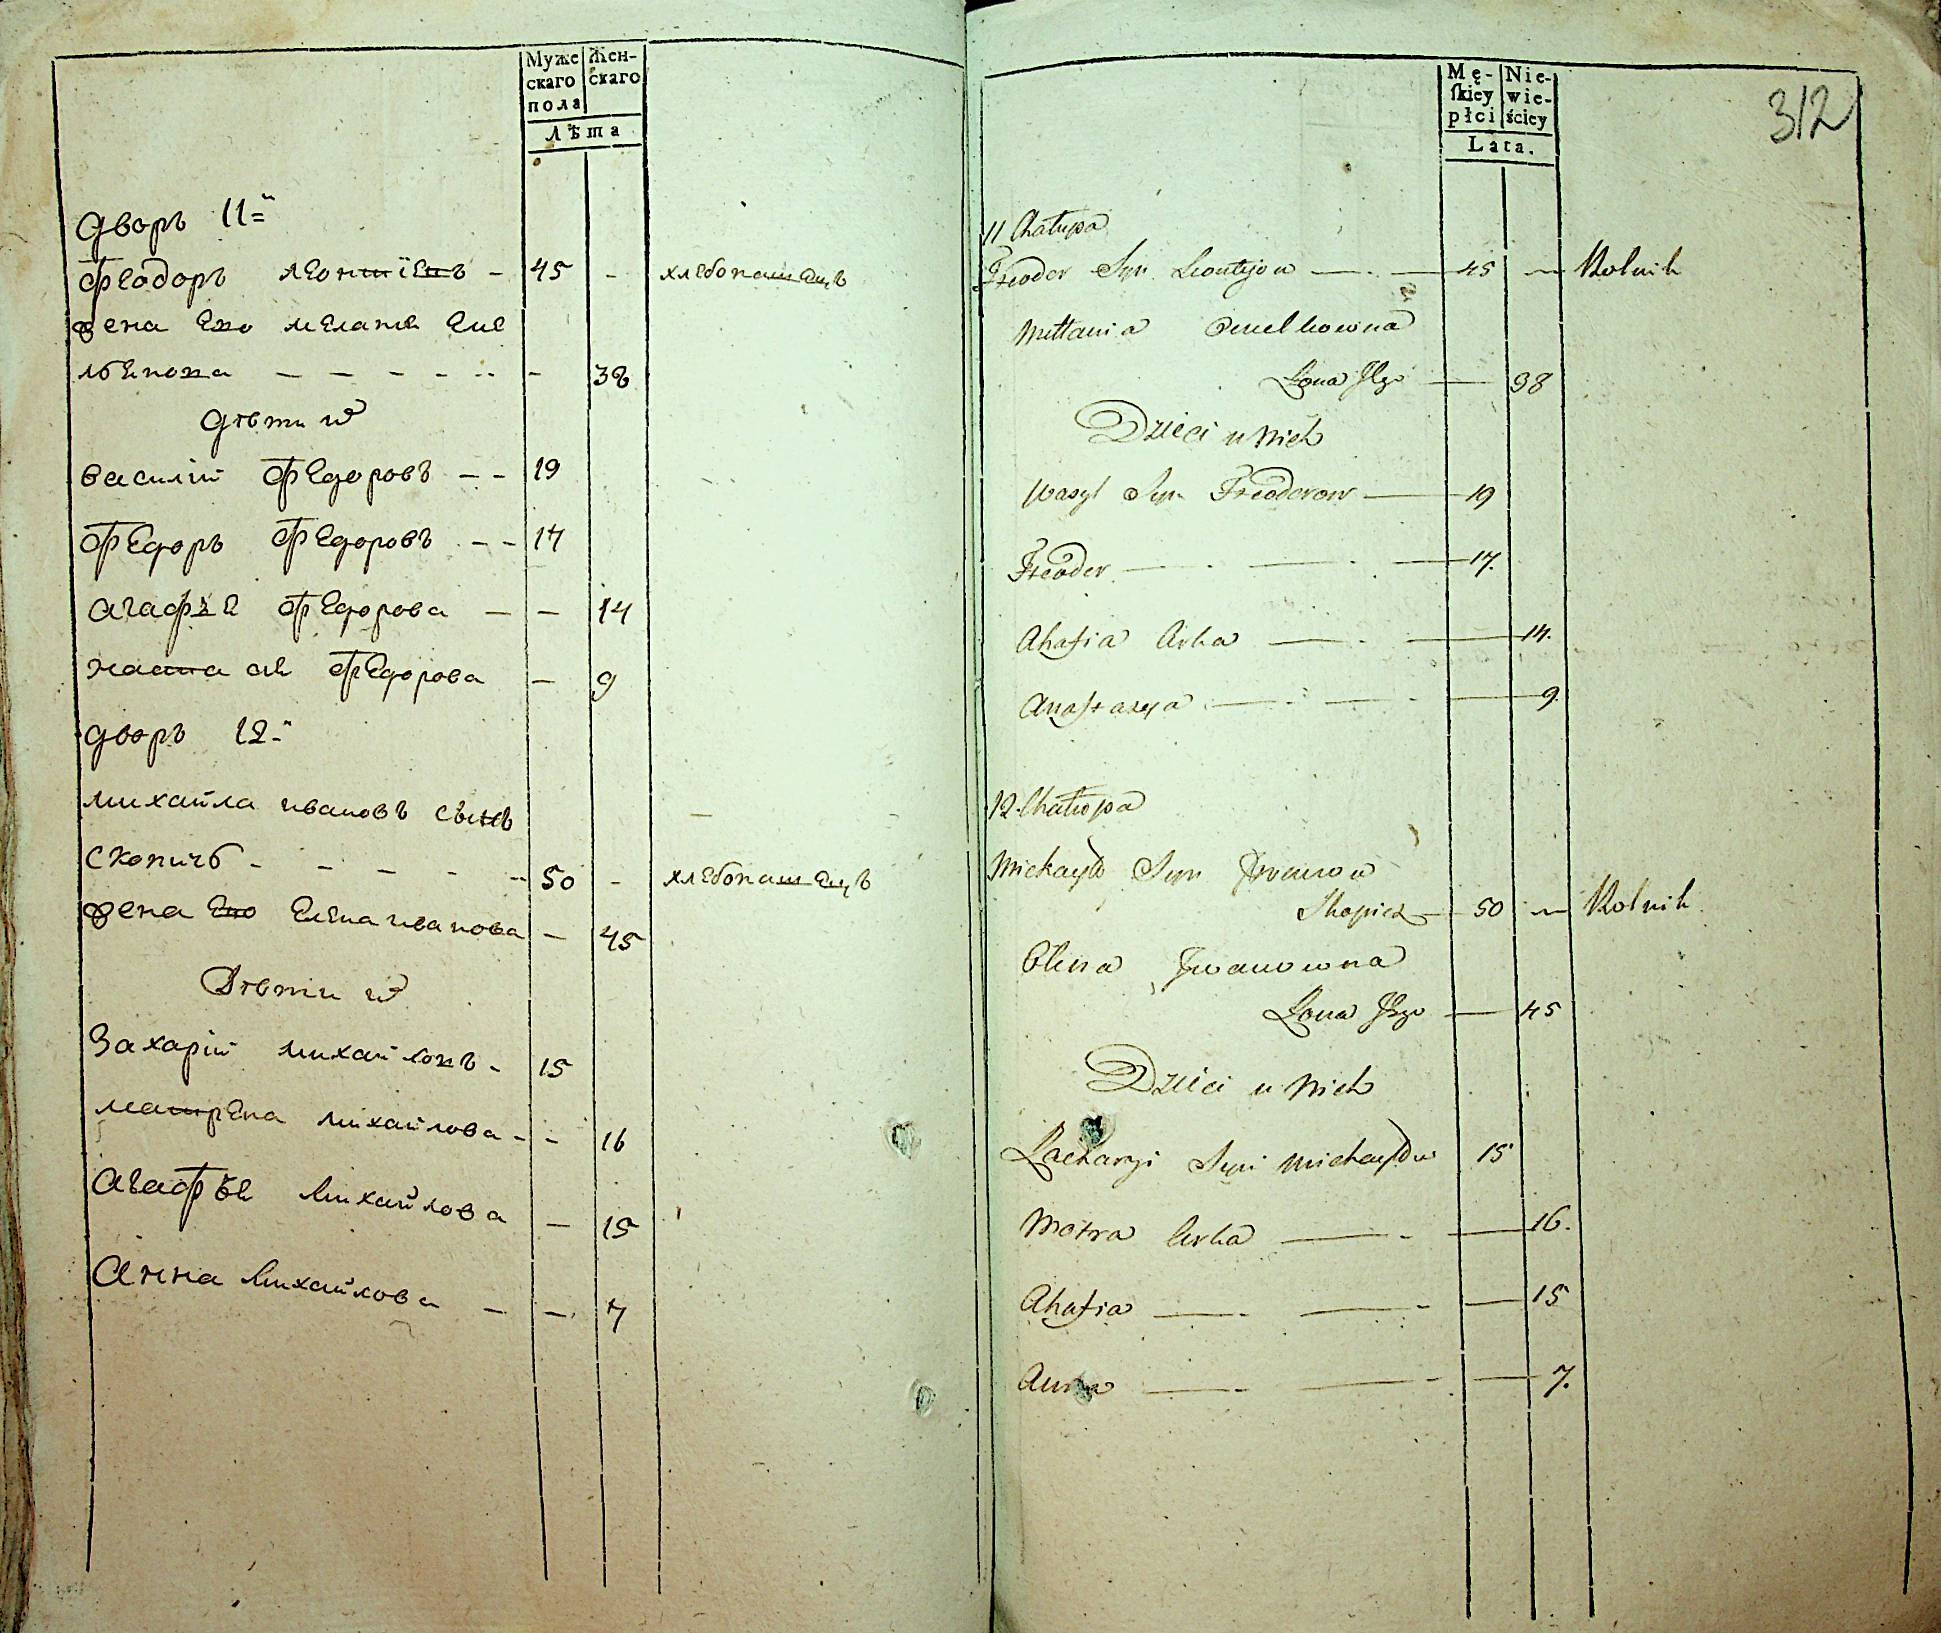 Муже
скаго
пола
Жен-
скаго
лѣта
дворъ 11=й
Феодоръ леонтїевъ - 45 - хлебопашецъ
жена Ево мелания Еме
льянова - - - - - - 38
дѣти ѿ
василїй Федоровъ - - 19
Федоръ Федоровъ - - 17
агафья Федорова - - 14
настася Федорова - 9
дворъ 12-й
михайла ивановъ сынъ
Скопичь - - - - - 50 - хлебопашецъ
жена Ево Елена иванова - 45
Дѣти ѿ
Захарїй михайловъ - 15
матрена михайлова - - 16
агафья михайлова - 15
Анна михайлова - - 7
Mę-
skiey
płci
Nie-
wie-
ściey
Lata.
312
11 Chałupa
Fteodor Syn Leontyjow — 45 — Rolnik
Mełania Omelkowna
Żona Jego — 38
Dzieci u nich
Wasyl Syn Fteodorow — 19
Fteodor — 17.
Ahafia Corka — 14.
Anastazya — 9.
12 Chałupa
Michayło Syn Jwanow
Skopicz — 50 — Rolnik
Olena Jwanowna
Żona Jego — 45
Dzieci u Nich
Zacharyi Syn Michayłow 15
Motra Corka — 16.
Ahafia — 15
Anna — 7.